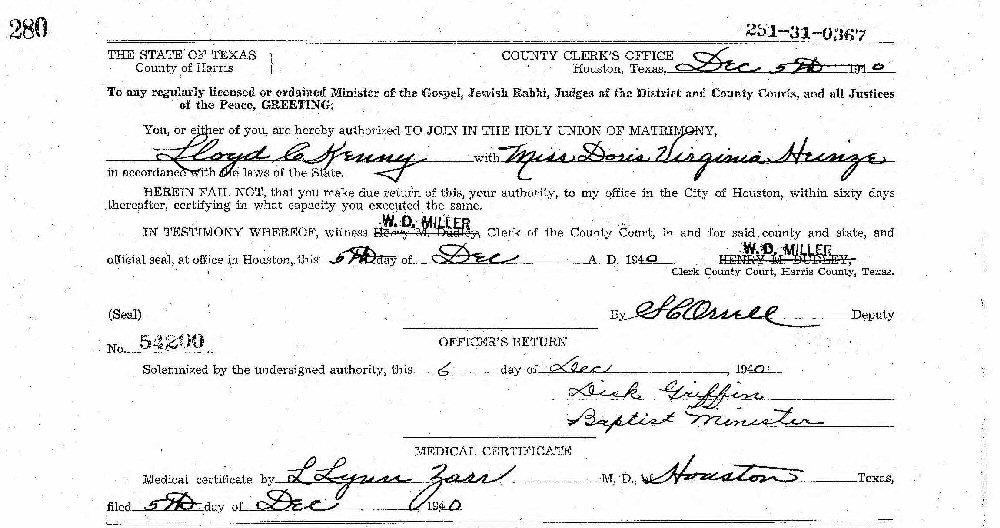 280
251-31-0367
THE STATE OF TEXAS
County of Harris
COUNTY CLERK'S OFFICE
Houston, Texas, Dec 5th 1940
To any regularly licensed or ordained Minister of the Gospel, Jewish Rabbi, Judges of the District and County Courts, and all Justices
of the Peace, GREETING:
You, or either of you, are hereby authorized TO JOIN IN THE HOLY UNION OF MATRIMONY,
Lloyd C Kenny with Miss Doris Virginia Heinze
in accordance with the laws of the State.
HEREIN FAIL NOT, that you make due return of this, your authority, to my office in the City of Houston, within sixty days
thereafter, certifying in what capacity you executed the same.
W. D. MILLER
IN TESTIMONY WHEREOF, witness Henry M. Dudley, Clerk of the County Court, in and for said county and state, and
W. D. MILLER
official seal, at office in Houston, this 5th day of Dec A. D. 1940 HENRY M. DUDLEY,
Clerk County Court, Harris County, Texas.
(Seal) By Deputy
No. 54200
OFFICER'S RETURN
Solemnized by the undersigned authority, this 6 day of Dec, 1940
Dick Griffin
Baptist Minister
MEDICAL CERTIFICATE
Medical certificate by L Lynn Zarr M. D., Houston Texas,
filed 5th day of Dec 1940